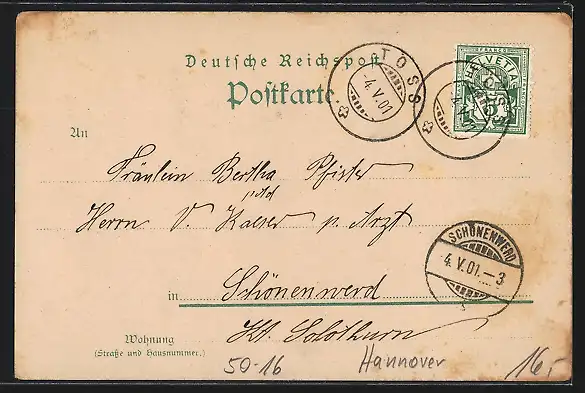 Deutsche Reichspost
Postkarte.
TÖSS
-4.V.01
FRANCO
HELVETIA
5
An
Fräulein Bertha Pfister
Herrn V. Kaeser p. Arzt
SCHÖNENWERD
4.V.01.-3
in Schönenwerd
Kt. Solothurn
Wohnung
(Straße und Hausnummer.)
50-16 Hannover 16,-